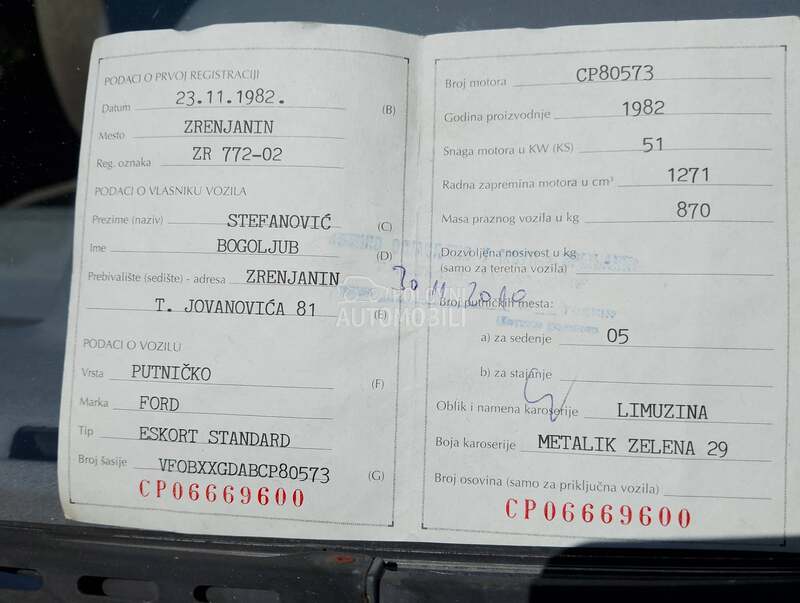 PODACI O PRVOJ REGISTRACIJI
Datum 23.11.1982. (B)
Mesto ZRENJANIN
Reg. oznaka ZR 772-02
PODACI O VLASNIKU VOZILA
Prezime (naziv) STEFANOVIĆ (C)
Ime BOGOLJUB (D)
Prebivalište (sedište) - adresa ZRENJANIN
T. JOVANOVIĆA 81 (E)
PODACI O VOZILU
Vrsta PUTNIČKO (F)
Marka FORD
Tip ESKORT STANDARD
Broj šasije VFOBXXGDABCP80573 (G)
CP06669600
POLOVNI
AUTOMOBILI
Broj motora CP80573
Godina proizvodnje 1982
Snaga motora u KW (KS) 51
Radna zapremina motora u cm³ 1271
Masa praznog vozila u kg 870
Dozvoljena nosivost u kg
(samo za teretna vozila)
Broj putničkih mesta:
a) za sedenje 05
b) za stajanje
Oblik i namena karoserije LIMUZINA
Boja karoserije METALIK ZELENA 29
Broj osovina (samo za priključna vozila)
CP06669600